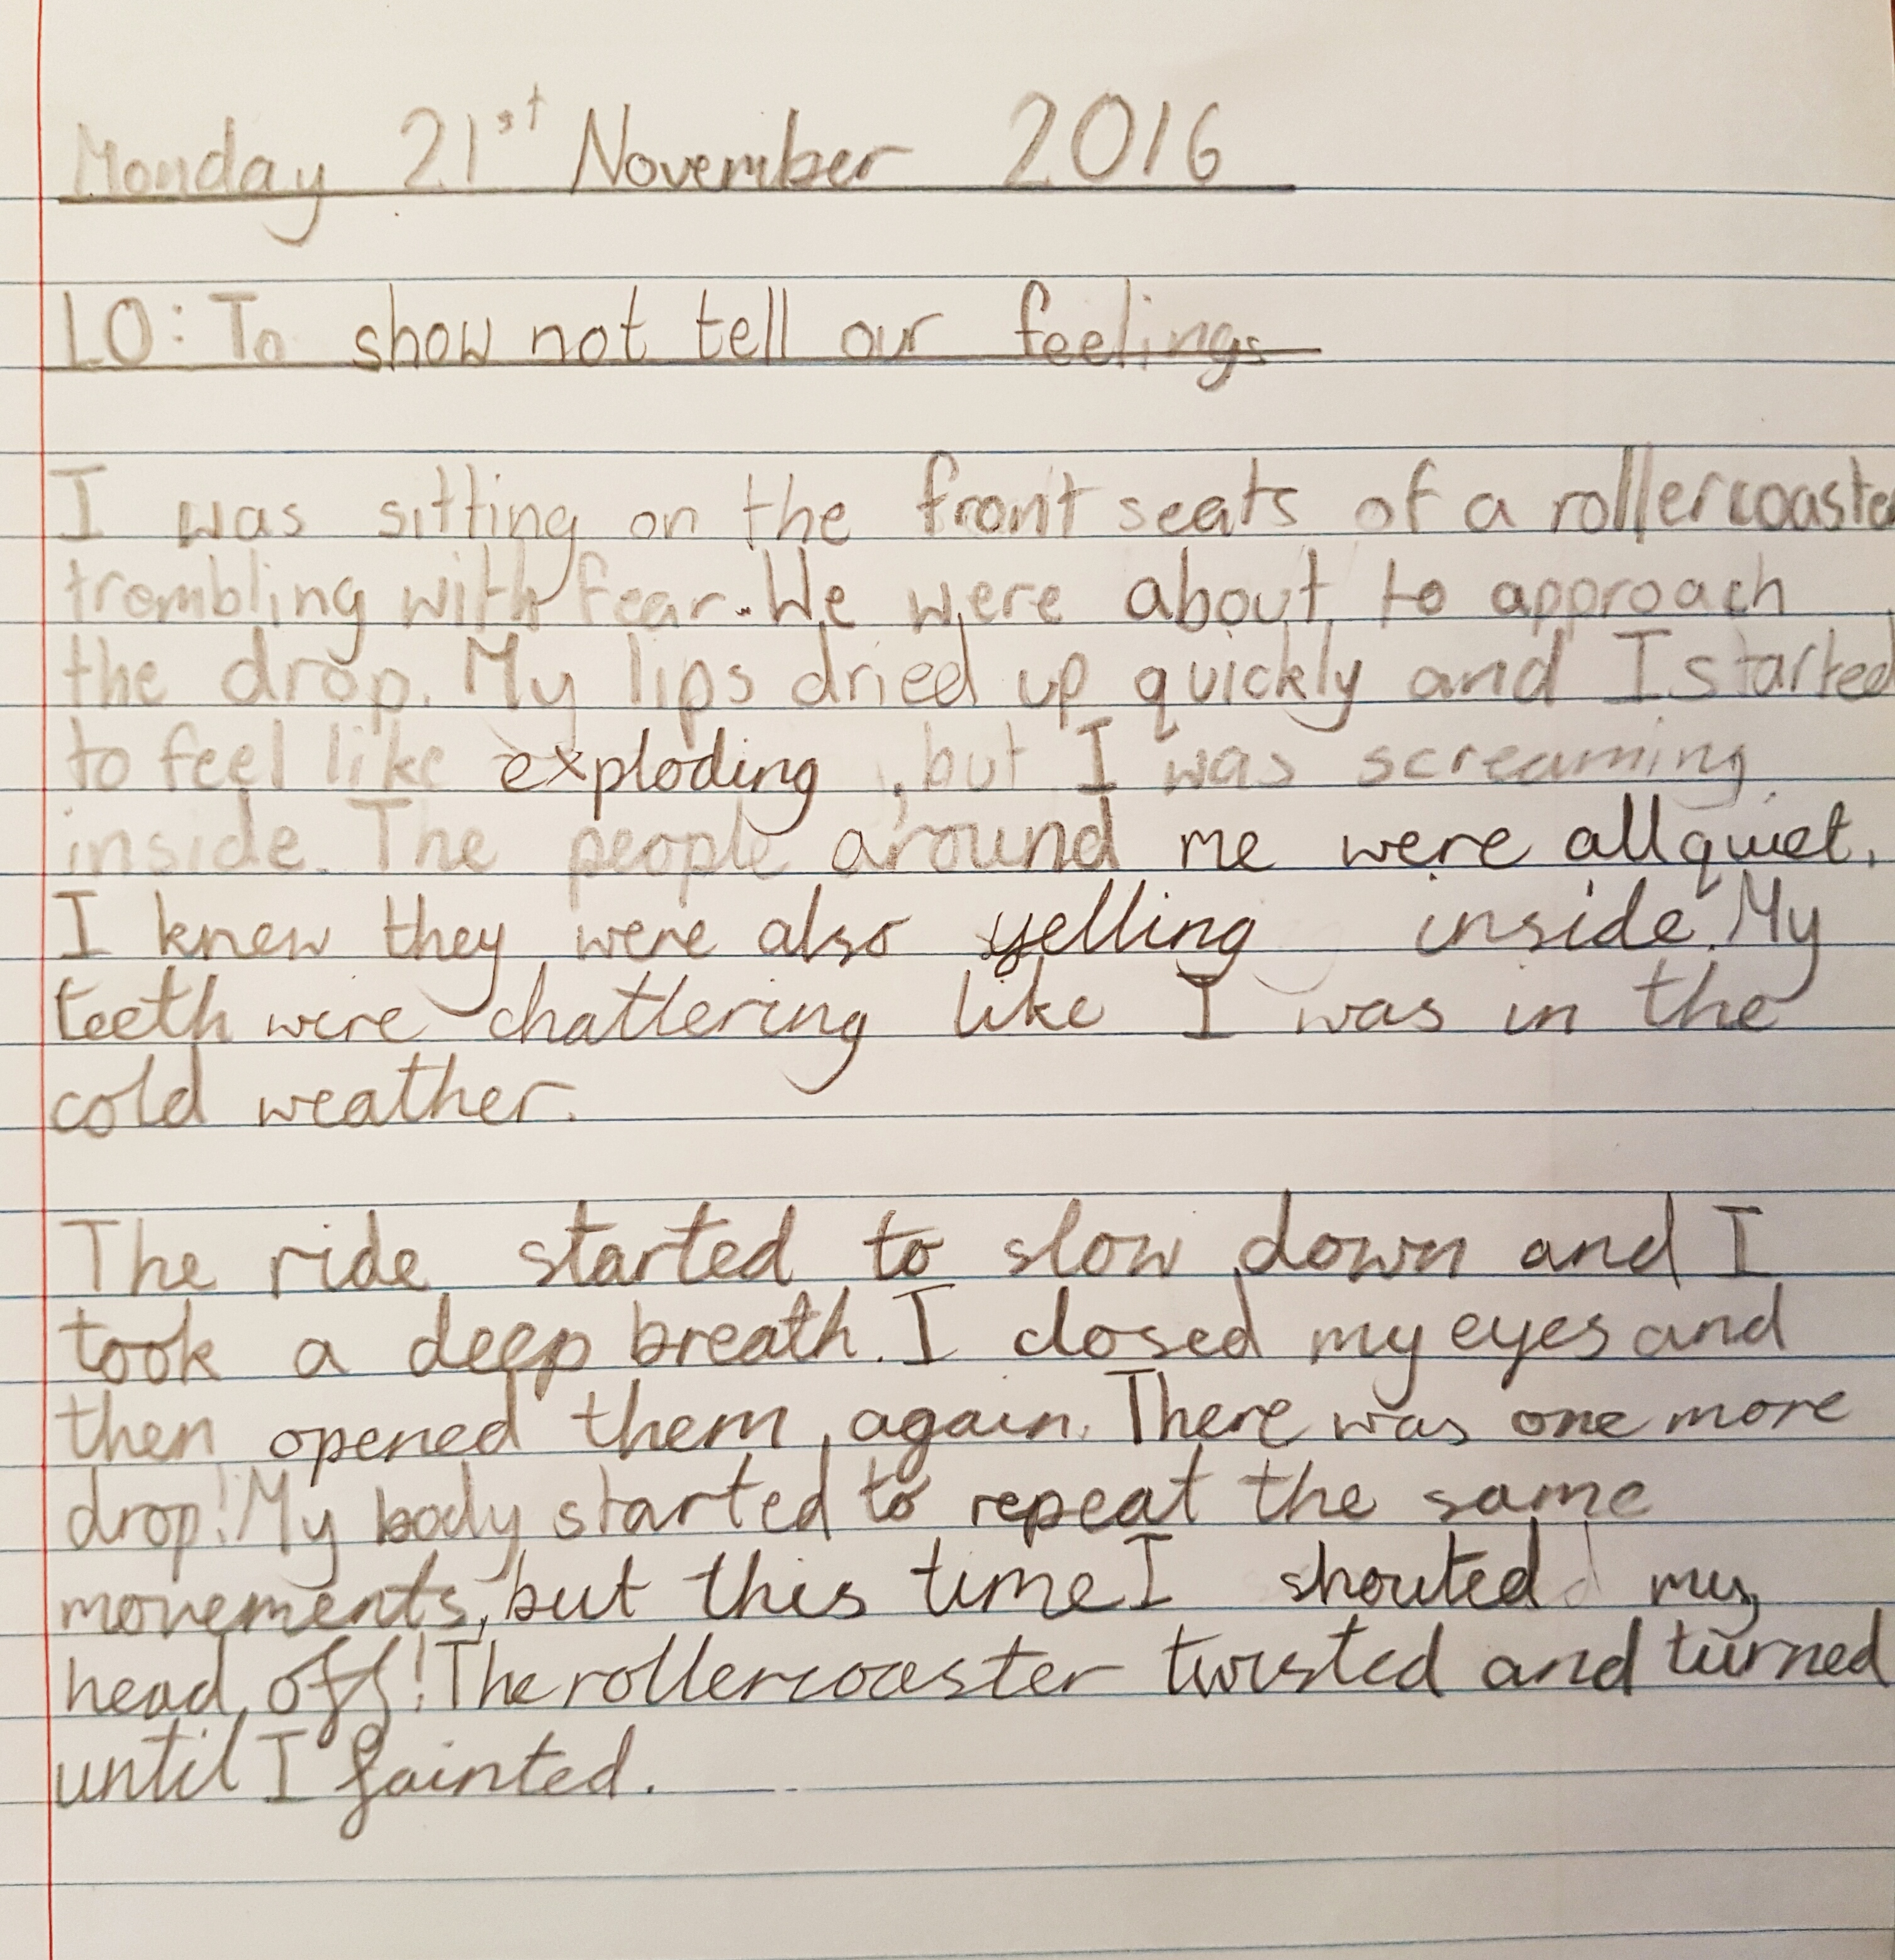 Monday 21st November 2016
LO: To show not tell our feelings
I was sitting on the front seats of a rollercoaster
trembling with fear. We were about to approach
the drop. My lips dried up quickly and I started
to feel like exploding , but I was screaming
inside. The people around me were all quiet.
I knew they were also yelling inside. My
teeth were chattering like I was in the
cold weather.
The ride started to slow down and I
took a deep breath. I closed my eyes and
then opened them again. There was one more
drop! My body started to repeat the same
movements, but this time I shouted my
head off! The rollercoaster twisted and turned
until I fainted.